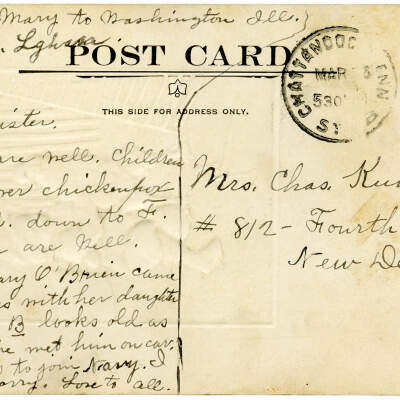 Mary to Washington Ill.
POST CARD
THIS SIDE FOR ADDRESS ONLY.
CHATTANOOG
ENN
MAR
530
ST
ister.
are well. Children
ver chickenpox
down to F.
are well.
ary O'Brien came
s with her daughter
B looks old as
he met him on car
to join Navy. I
orry. Love to all.
Mrs. Chas. Kun
# 812- Fourth
New De